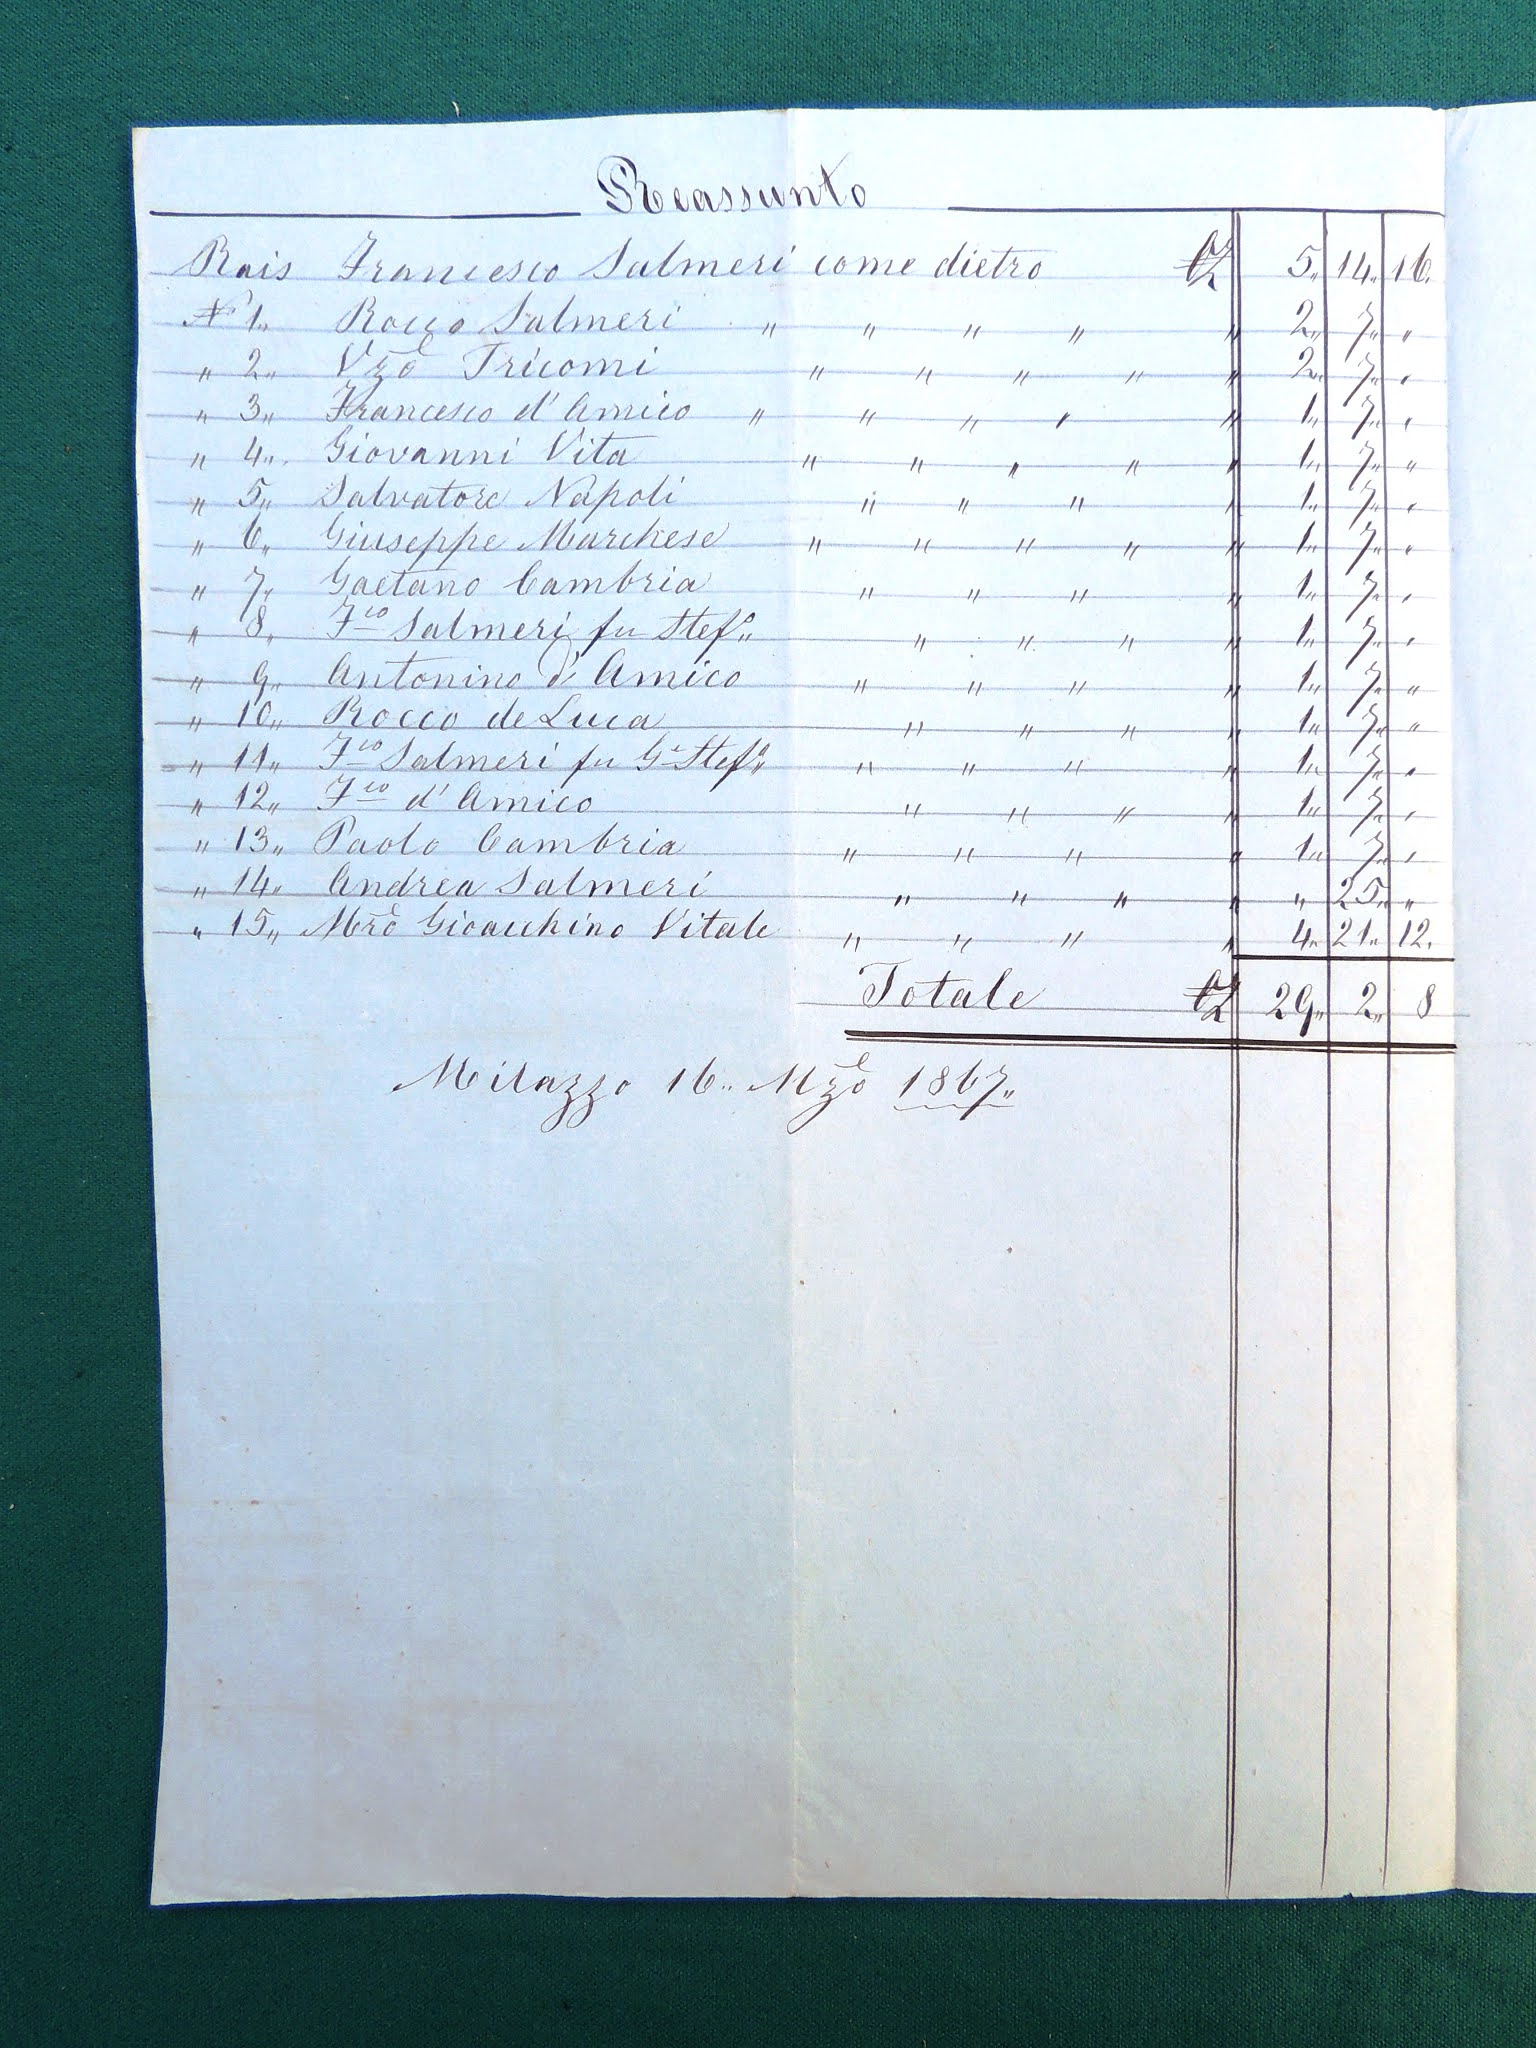 Reassunto
Rais Francesco Salmeri come dietro 5,, 14,, 16.
N° 1,, Rocco Salmeri " " " " " 2,, 7,, "
" 2,, Vzo Tricomi " " " " " 2,, 7,, "
" 3,, Francesco d'Amico " " " " " 1,, 7,, "
" 4,, Giovanni Vita " " " " " 1,, 7,, "
" 5,, Salvatore Napoli " " " " 1,, 7,, "
" 6,, Giuseppe Marchese " " " " " 1,, 7,, "
" 7,, Gaetano Cambria " " " " 1,, 7,, "
" 8,, Fco Salmeri fu Stefo,, " " " " 1,, 7,, "
" 9,, Antonino d'Amico " " " " 1,, 7,, "
" 10,, Rocco de Luca " " " " 1,, 7,, "
" 11,, Fco Salmeri fu Ge Stefo,, " " " " 1,, 7,, "
" 12,, Fco d'Amico " " " " 1,, 7,, "
" 13,, Paolo Cambria " " " " 1,, 7,, "
" 14,, Andrea Salmeri " " " " " 25,, "
" 15,, Mro Gioacchino Vitale " " " " 4,, 21,, 12.
Totale 29,, 2,, 8
Milazzo 16,, Mzo 1867,,